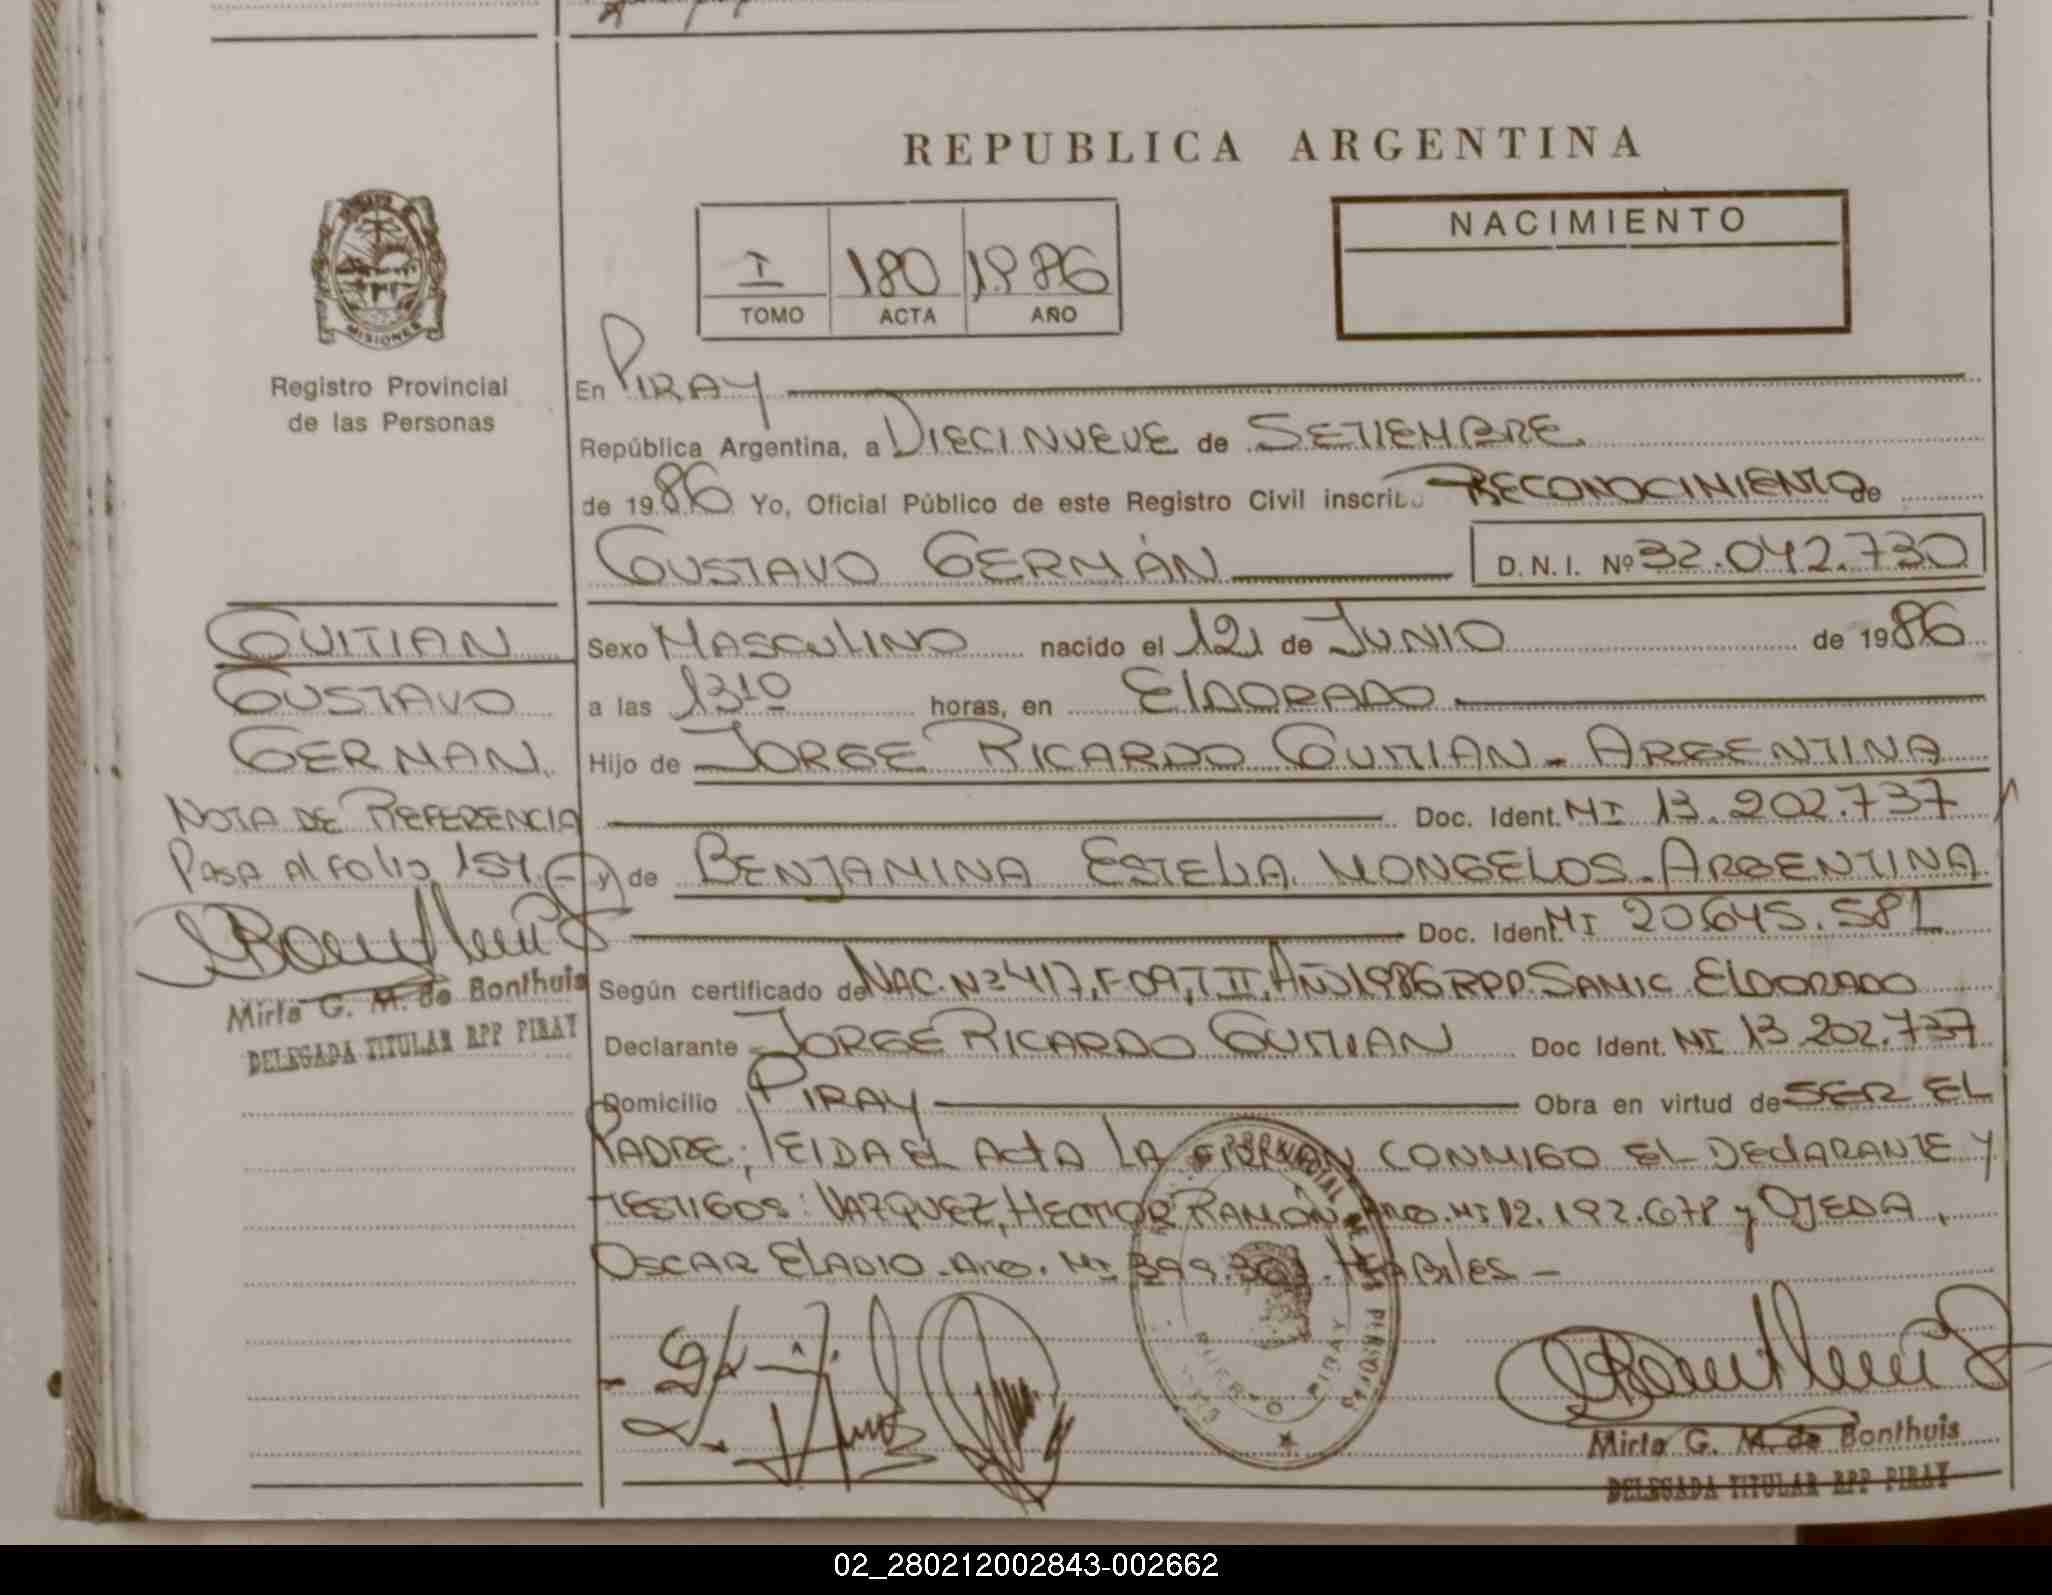 REPUBLICA ARGENTINA
NACIMIENTO
I 180 1986
TOMO ACTA AÑO
MISIONES
Registro Provincial
de las Personas
En PIRAY
República Argentina, a DIECINUEVE de SETIEMBRE
de 1986 Yo, Oficial Público de este Registro Civil inscribo RECONOCIMIENTO de
GUSTAVO GERMÁN D.N.I. Nº 32.042.730
GUITIAN
GUSTAVO
GERMAN.
NOTA DE REFERENCIA
PASA Al folio 154.
Mirta G. M. de Bonthuis
DELEGADA TITULAR RPP PIRAY
Sexo MASCULINO nacido el 12 de JUNIO de 1986
a las 13 10 horas, en ElDORADO
Hijo de JORGE RICARDO GUITIAN - ARGENTINA
Doc. Ident. MI 13.202.737
y de BENJAMINA ESTELA MONGELOS - ARGENTINA
Doc. Ident. MI 20.645.581
Según certificado de NAC. Nº 417, F-09, T II, AÑO 1986 RPP. SAMIC ElDORADO
Declarante JORGE RICARDO GUITIAN Doc Ident. MI 13.202.737
Domicilio PIRAY Obra en virtud de SER EL
PADRE; lEIDA El ActA LA FIRMAN CONMIGO EL DEClARANTE Y
TESTIGOS: VAZQUEZ, HECTOR RAMÓN ARG. MI 12.192.678 y OJEDA,
OSCAR ELADIO - ARG. MI HABILES -
PUERTO PIRAY
Mirta G. M. de Bonthuis
DELEGADA TITULAR RPP PIRAY
02_280212002843-002662